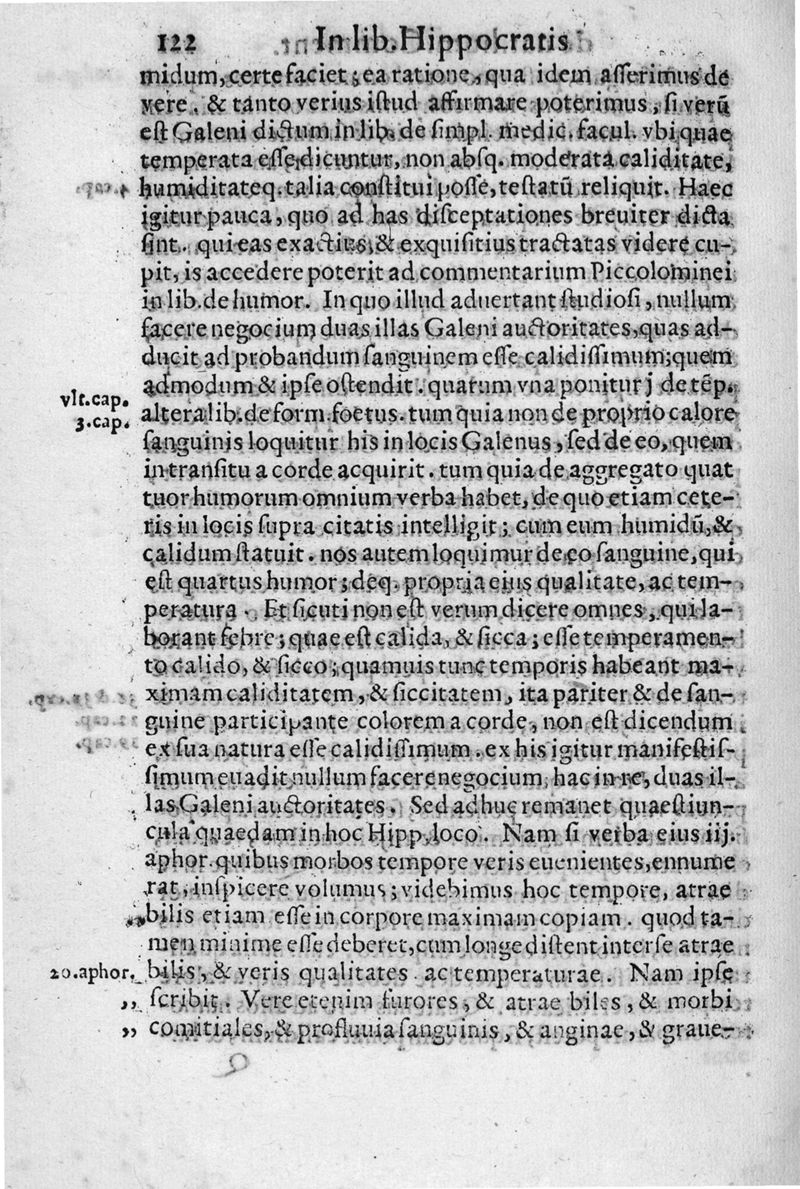 122 In lib. Hippocratis
midum, certe faciet; ea ratione, qua idem asserimus de
vere. & tanto verius istud affirmare poterimus, si verū
est Galeni dictum in lib. de simpl. medic. facul. vbi quae
temperata esse dicuntur, non absq. moderata caliditate,
humiditateq. talia constitui posse, testatū reliquit. Haec
igitur pauca, quo ad has disceptationes breuiter dicta
sint. qui eas exactius, & exquisitius tractatas videre cu-
pit, is accedere poterit ad commentarium Piccolominei
in lib. de humor. In quo illud aduertant studiosi, nullum
facere negocium duas illas Galeni auctoritates, quas ad-
ducit ad probandum sanguinem esse calidissimum; quem
admodum & ipse ostendit. quarum vna ponitur j de tēp.
vlt. cap.
altera lib. de form. foetus. tum quia non de proprio calore
3. cap.
sanguinis loquitur his in locis Galenus, sed de eo, quem
in transitu a corde acquirit. tum quia de aggregato quat
tuor humorum omnium verba habet, de quo etiam cete-
ris in locis supra citatis intelligit; cum eum humidū, &
calidum statuit. nos autem loquimur de eo sanguine, qui
est quartus humor; deq. propria eius qualitate, ac tem-
peratura. Et sicuti non est verum dicere omnes, qui la-
borant febre; quae est calida, & sicca; esse temperamen-
to calido, & sicco; quamuis tunc temporis habeant ma-
ximam caliditatem, & siccitatem, ita pariter & de san-
guine participante colorem a corde, non est dicendum
ex sua natura esse calidissimum. ex his igitur manifestis-
simum euadit nullum facere negocium, hac in re, duas il-
las Galeni auctoritates. Sed adhuc remanet quaestiun-
cula quaedam in hoc Hipp. loco. Nam si verba eius iij.
aphor. quibus morbos tempore veris euenientes, ennume
rat, inspicere volumus; videbimus hoc tempore, atrae
bilis etiam esse in corpore maximam copiam. quod ta-
men minime esse deberet, cum longe distent inter se atrae
20. aphor. bilis, & veris qualitates ac temperaturae. Nam ipse
,, scribit. Vere etenim furores, & atrae biles, & morbi
,, comitiales, & profluuia sanguinis, & anginae, & graue-